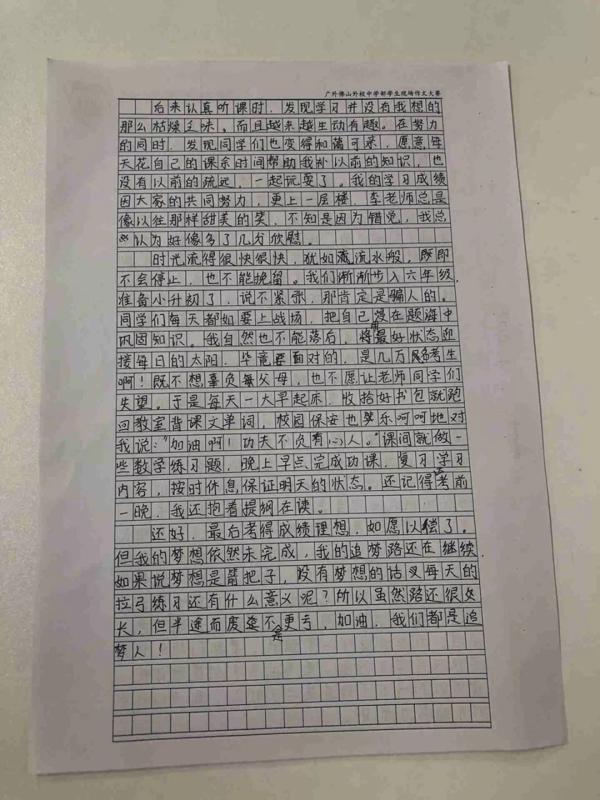 广外佛山外校中学部学生现场作文大赛
后来认真听课时，发现学习并没有我想的
那么枯燥乏味。而且越来越生动有趣。在努力
的同时，发现同学们也变得和蔼可亲，愿意每
天花自己的课余时间帮助我补以前的知识，也
没有以前的疏远，一起玩耍了。我的学习成绩
因大家的共同努力，更上一层楼，李老师总是
像以往那样甜美的笑，不知是因为错觉，我总
认为好像多了几分欣慰。
时光流得很快很快，犹如流水般。既即
不会停止，也不能挽留。我们渐渐步入六年级，
准备小升初了，说不紧张，那肯定是骗人的。
同学们每天都如要上战场，把自己埋在题海中
巩固知识。我自然也不能落后，将最好状态迎
接每日的太阳，毕竟要面对的，是几万名考生
啊！既不想辜负父母，也不愿让老师同学们
失望。于是每天一大早起床，收拾好书包就跑
回教室背课文单词，校园保安也笑乐呵呵地对
我说："加油啊！功夫不负有心人。"课间就做一
些数学练习题，晚上早点完成功课，复习学习
内容，按时休息保证明天的状态。还记得考前
一晚，我还抱着提纲在读。
还好，最后考得成绩理想，如愿以偿了。
但我的梦想依然未完成，我的追梦路还在继续，
如果说梦想是箭把子，没有梦想的话又每天的
拉弓练习还有什么意义呢？所以虽然路还很久
长，但半途而废会是不更亏，加油，我们都是追
梦人！